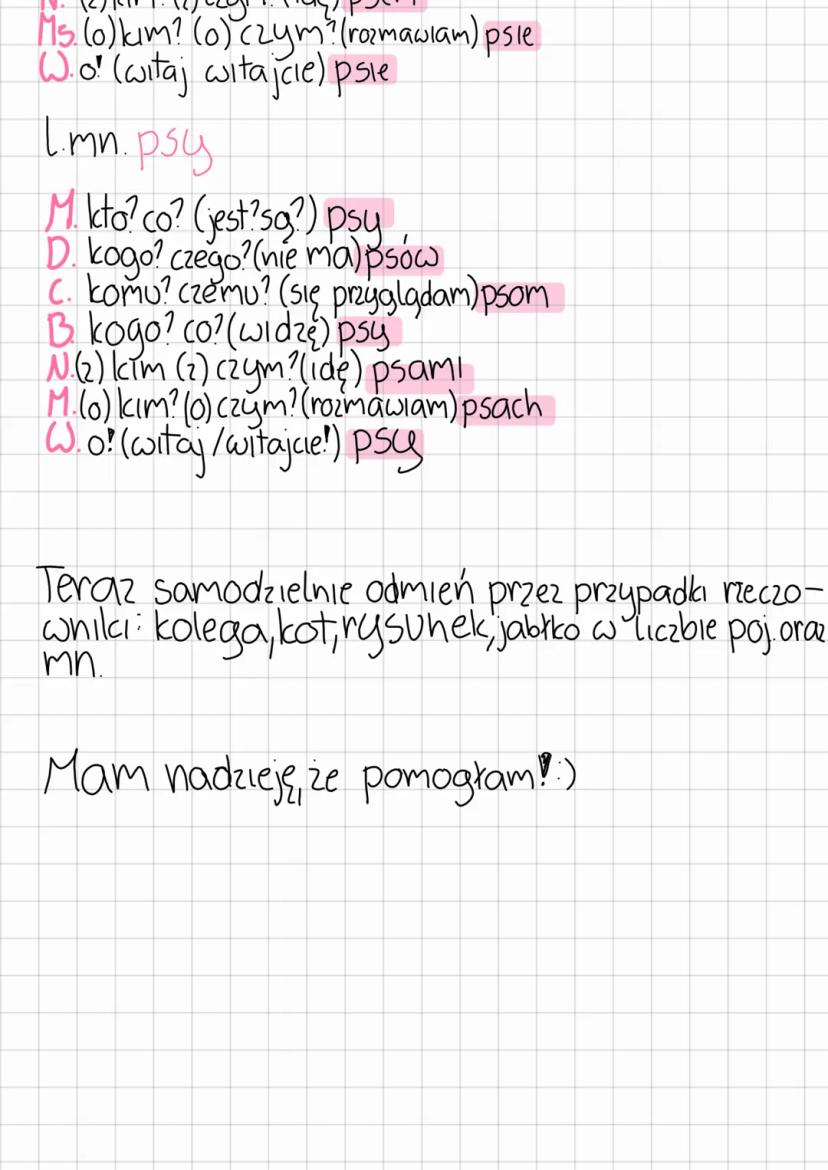 Ms. (o) kim? (o) czym? (rozmawiam) psie
W. o! (witaj witajcie) psie
l.mn. psy
M. kto? co? (jest? są?) psy
D. kogo? czego? (nie ma) psów
C. komu? czemu? (się przyglądam) psom
B. kogo? co? (widzę) psy
N. (z) kim (z) czym? (idę) psami
M. (o) kim? (o) czym? (rozmawiam) psach
W. o! (witaj/witajcie!) psy
Teraz samodzielnie odmień przez przypadki rzeczo-
wniki: kolega, kot, rysunek, jabłko w liczbie poj. oraz
mn.
Mam nadzieję, że pomogłam! :)